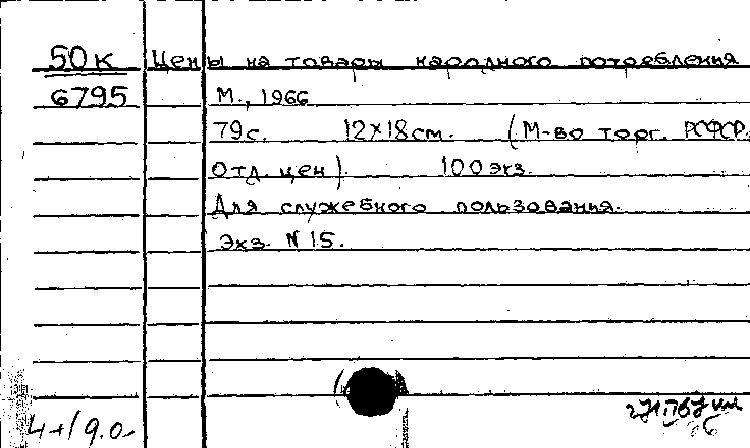 50к Цены на товары народного потребления
6795 М., 1966
79с. 12х18см. (М-во торг. РСФСР.
Отд. цен). 100экз.
Для служебного пользования.
Экз. N 15.